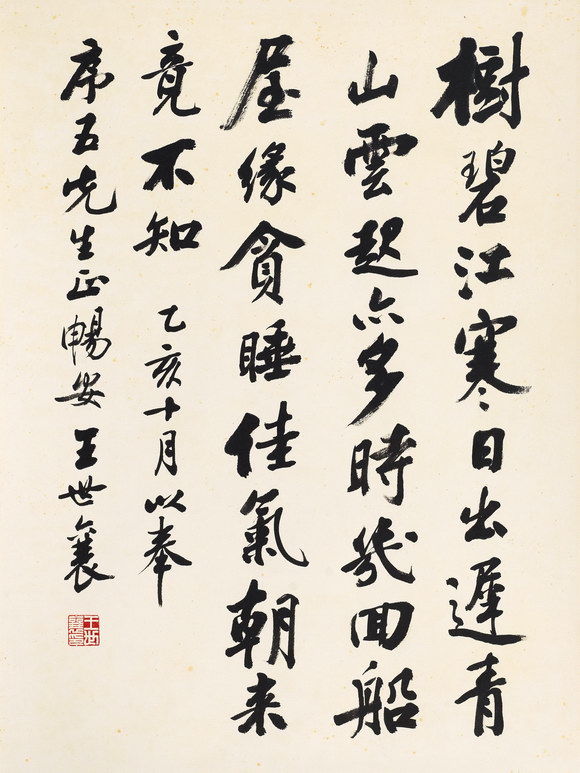 樹碧江寒日出遲青
山雲起亦多時幾回船
屋緣貪睡佳氣朝来
竟不知 乙亥十月以奉
席五先生正暢安王世襄
王世襄